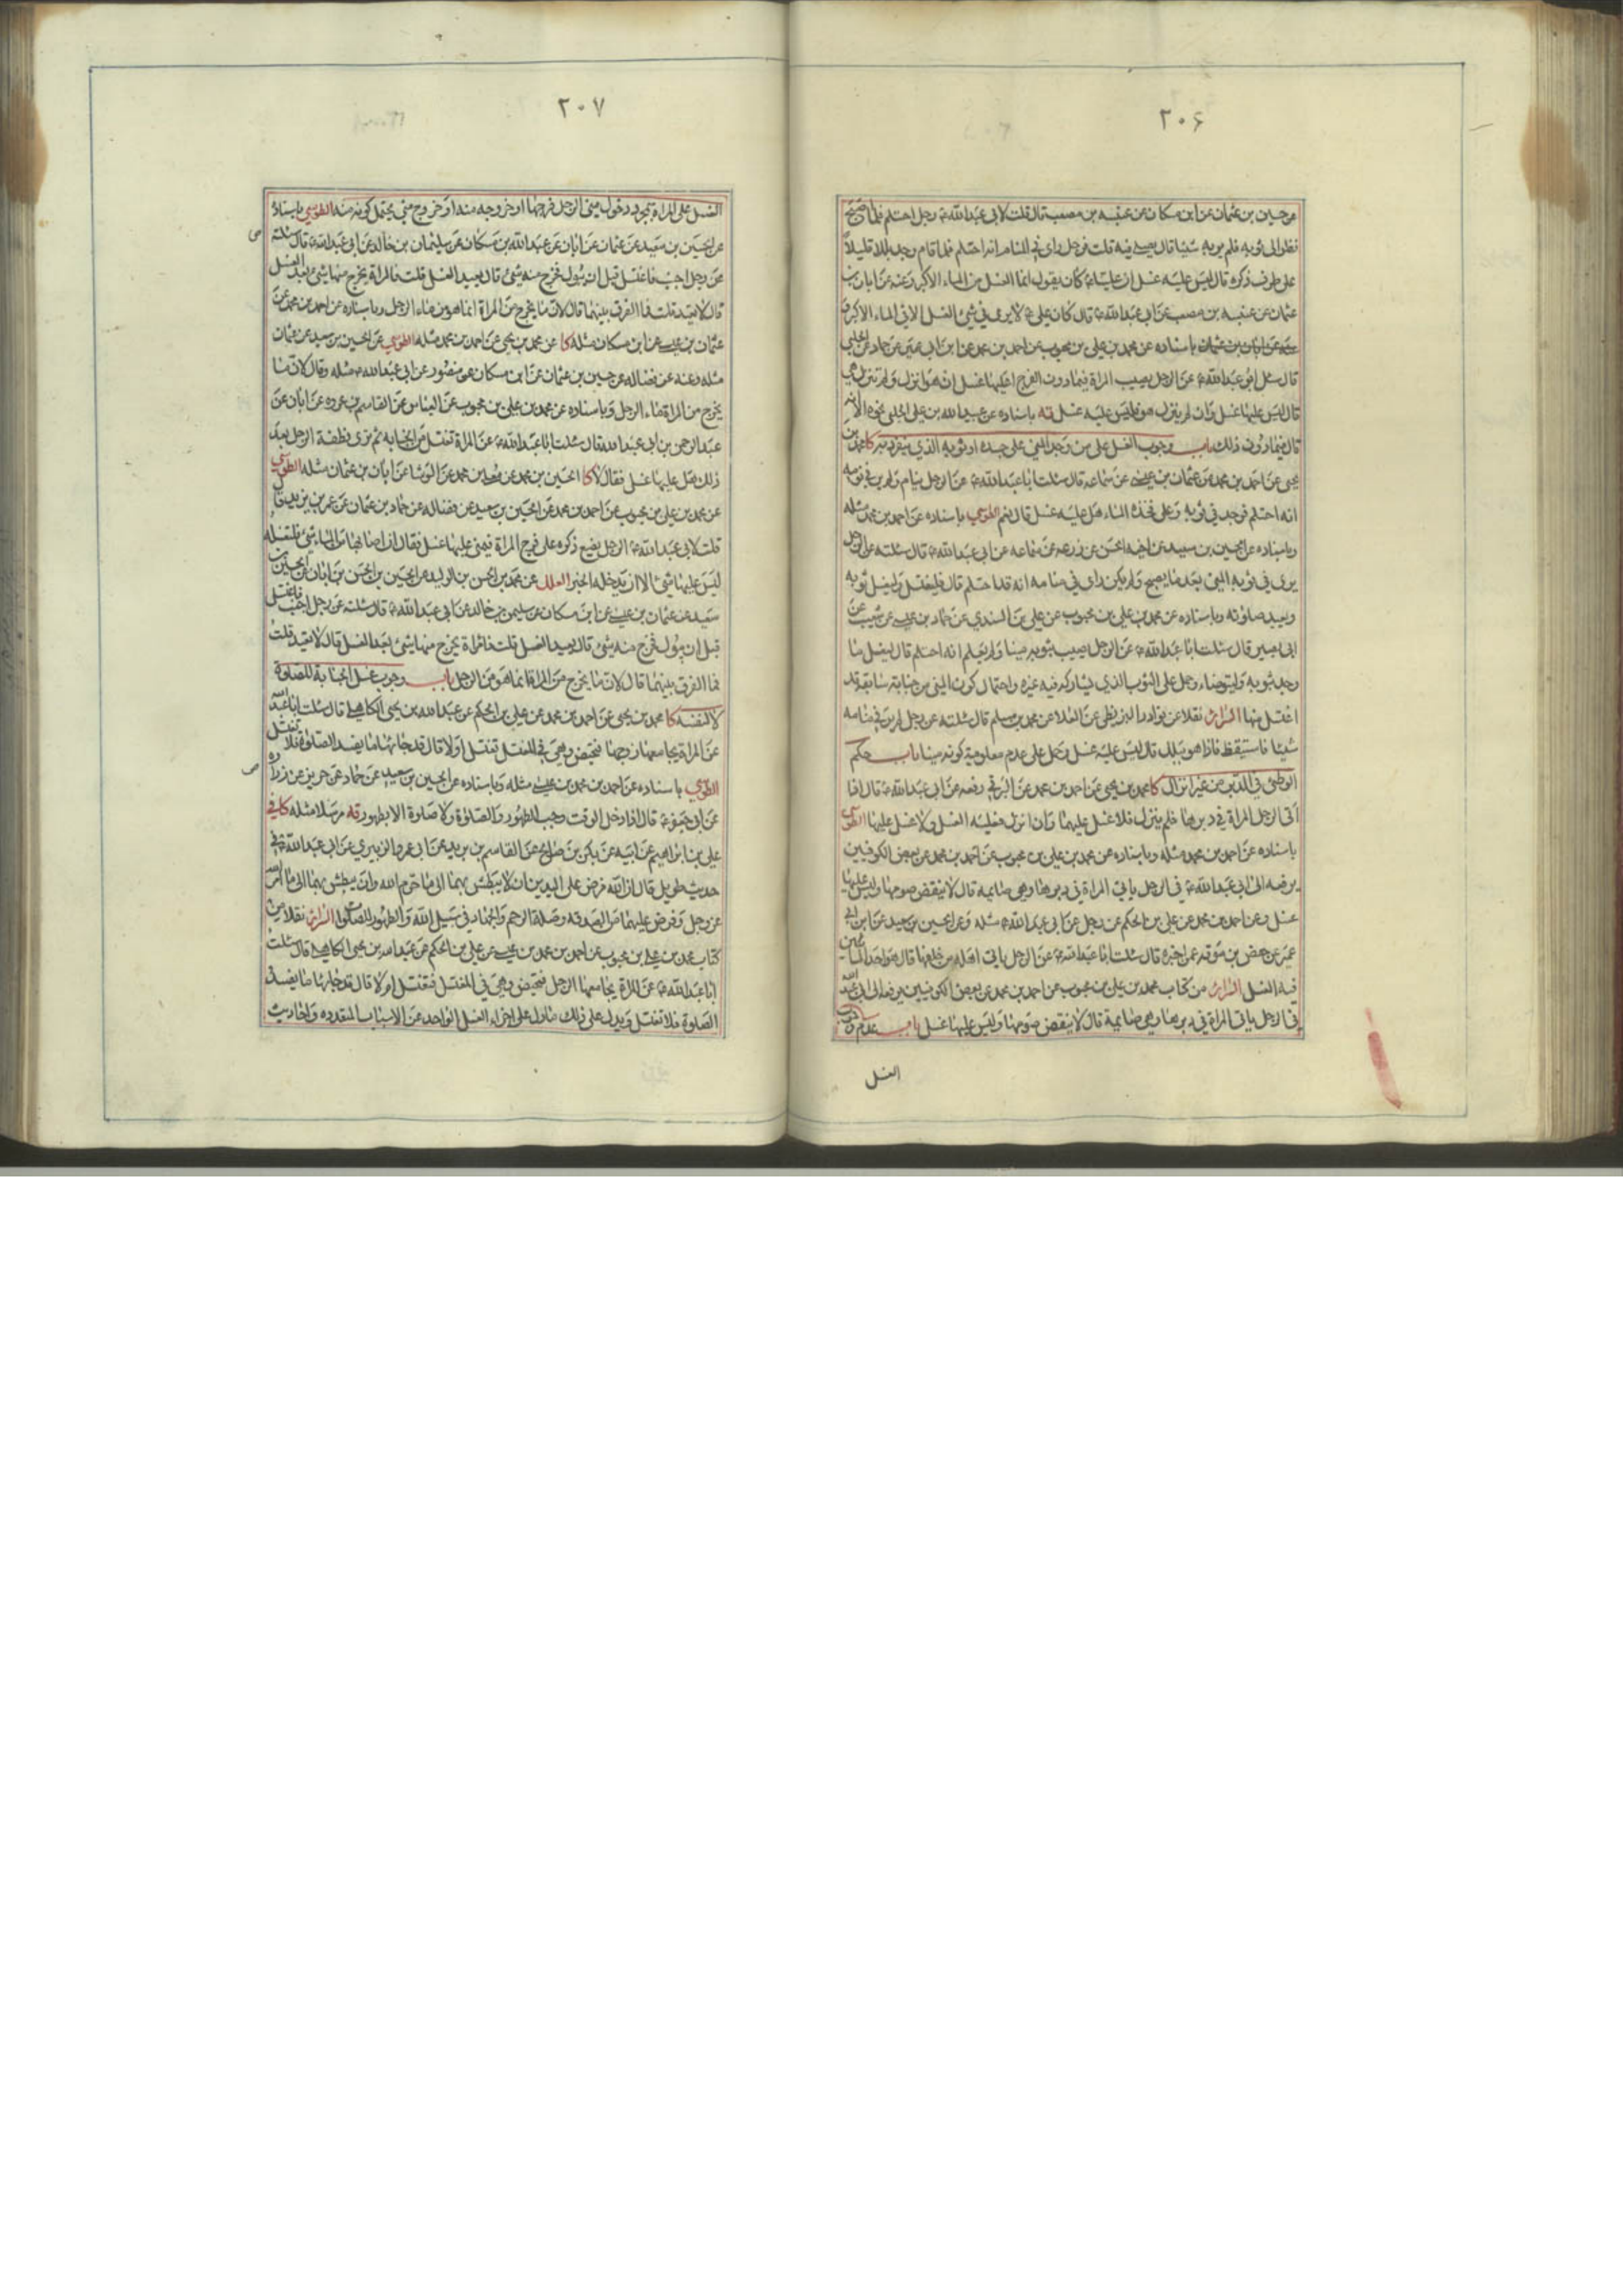 ٢٠۶
عن حسين بن عثمان عن ابن مسكان عن عنبسه بن مصعب قال قلت لابى عبد الله ع رجل احتلم فلما اصبح
نظر الى ثوبه فلم ير به شيئا قال يصلى فيه قلت فرجل راى فى المنام انه احتلم فلما قام وجد بللا قليلاً
على طرف ذكره قال ليس عليه غسل ان علياً ع كان يقول انما الغسل من الماء الاكبر وعنه عن ابان بن
عثمان عن عنبسه بن مصعب عن ابى عبد الله ع قال كان على ع لا يرى فى شئ الغسل الا فى الماء الاكبر
باسناده عن محمد بن على بن محبوب عن احمد بن محمد عن ابن ابى عمير عن حماد عن الحلبى
قال سئل ابو عبد الله ع عن الرجل يصيب المراة فيما دون الفرج اعليها غسل ان هو انزل ولم تنزل هى
قال ليس عليها غسل وان لم ينزل هو فليس عليه غسل قه باسناده عن عبيد الله بن على الحلبى نحوه الا انه
قال فيما دون ذلك باب وجوب الغسل على من وجد المنى على جسده او ثوبه الذى ينفرد به كا محمد بن
يحيى عن احمد بن محمد عن عثمان بن عيسى عن سماعه قال سئلت ابا عبد الله ع عن الرجل ينام ولم ير فى نومه
انه احتلم فوجد فى ثوبه وعلى فخذه الماء هل عليه غسل قال نعم الطوسي باسناده عن احمد بن محمد مثله
وباسناده عن الحسين بن سعيد عن اخيه الحسن عن زرعه عن سماعه عن ابى عبد الله ع قال سئلته عن الرجل
يرى فى ثوبه المنى بعد ما يصبح ولم يكن راى فى منامه انه قد احتلم قال فليغتسل وليغسل ثوبه
ويعيد صلوته وباسناده عن محمد بن على بن محبوب عن على بن السندي عن حماد بن عيسى عن شعيب عن
ابى بصير قال سئلت ابا عبد الله ع عن الرجل يصيب بثوبه منيا ولم يعلم انه احتلم قال ليغسل ما
وجد بثوبه وليتوضاء وحمل على الثوب الذي يشاركه فيه غيره واحتمال كون المنى من جنابة سابقة قد
اغتسل منها السرائر نقلا عن نوادر البزنطى عن العلا عن محمد بن مسلم قال سئلته عن رجل لم ير فى منامه
شيئا فاستيقظ فاذا هو ببلل قال ليس عليه غسل وحمل على عدم معلومية كونه منيا باب حكم
الوطئ فى الدبر من غير انزال كا محمد بن يحيى عن احمد بن محمد عن البرقى رفعه عن ابى عبد الله ع قال اذا
اتى الرجل المراة فى دبرها فلم ينزل فلا غسل عليهما وان انزل فعليه الغسل ولا غسل عليها الطوسي
باسناده عن احمد بن محمد مثله وباسناده عن محمد بن على بن محبوب عن احمد بن محمد عن بعض الكوفيين
يرفعه الى ابى عبد الله ع فى الرجل ياتى المراة فى دبرها وهى صائمه قال لا ينقض صومها وليس عليها
غسل وعن احمد بن محمد عن على بن الحكم عن رجل عن ابى عبد الله ع مثله وعن الحسين بن سعيد عن ابن ابى
عمير عن حفص بن سوقه عمن اخبره قال سئلت ابا عبد الله ع عن الرجل ياتى اهله من خلفها قال هو احد الماتيين
فيه الغسل السرائر من كتاب محمد بن على بن محبوب عن احمد بن محمد عن بعض الكوفيين يرفعه الى ابى عبد الله
فى الرجل ياتى المراة فى دبرها وهى صائمة قال لا ينقض صومها وليس عليها غسل باب عدم وجوب
الغسل
٢٠٧
الغسل على المراة بمجرد دخول منى الرجل فرجها او خروجه منه او خروج منى يحتمل كونه منه الطوسي باسناده
عن الحسين بن سعيد عن عثمان عن ابان عن عبد الله بن مسكان عن سليمان بن خالد عن ابى عبد الله ع قال سئلته
عن رجل اجنب فاغتسل قبل ان يبول فخرج منه شئ قال يعيد الغسل قلت فالمراة يخرج منها شئ بعد الغسل
قال لا تعيد قلت فما الفرق بينهما قال لان ما يخرج من المراة انما هو من ماء الرجل وباسناده عن احمد بن محمد عن
عثمان بن عيسى عن ابن مسكان مثله كا عن محمد بن يحيى عن احمد بن محمد مثله الطوسي عن الحسين بن سعيد عن عثمان
مثله وعنه عن فضاله عن حسين بن عثمان عن ابن مسكان عن منصور عن ابى عبد الله ع مثله وقال لان ما
يخرج من المراة ماء الرجل وباسناده عن محمد بن على بن محبوب عن العباس عن القاسم بن عروه عن ابان عن
عبد الرحمن بن ابى عبد الله قال سئلت ابا عبد الله ع عن المراة تغتسل من الجنابه ثم ترى نطفة الرجل بعد
ذلك هل عليها غسل فقال لا كا الحسين بن محمد عن معلى بن محمد عن الوشا عن ابان بن عثمان مثله الطوسي
عن محمد بن على بن محبوب عن احمد بن محمد عن الحسين بن سعيد عن فضاله عن حماد بن عثمان عن عمر بن يزيد قال
قلت لابى عبد الله ع الرجل يضع ذكره على فرج المراة فيمنى عليها غسل فقال ان اصابها من الماء شئ فلتغسله
ليس عليها شئ الا ان يدخله الخبر العلل عن محمد بن الحسن بن الوليد عن الحسين بن الحسن بن ابان عن الحسين بن
سعيد عن عثمان بن عيسى عن ابن مسكان عن سليمن بن خالد عن ابى عبد الله ع قال سئلته عن رجل اجنب فاغتسل
قبل ان يبول فخرج منه شئ قال يعيد الغسل قلت فامراة يخرج منها شئ بعد الغسل قال لا تعيد قلت
فما الفرق بينهما قال لان ما يخرج من المراة انما هو من الرجل باب وجوب غسل الجنابة للصلوة
لا لنفسه كا محمد بن يحيى عن احمد بن محمد عن على بن الحكم عن عبد الله بن يحيى الكاهلى قال سئلت ابا عبد الله
عن المراة يجامعها زوجها فتحيض وهى فى المغتسل تغتسل او لا قال قد جائها ما يفسد الصلوة فلا تغتسل
الطوسي باسناده عن احمد بن محمد بن عيسى مثله وباسناده عن الحسين بن سعيد عن حماد عن حريز عن زراره
عن ابى جعفر ع قال اذا دخل الوقت وجب الطهور والصلوة ولا صلوة الا بطهور قه مرسلا مثله كا فى
على بن ابراهيم عن ابيه عن بكر بن صالح عن القاسم بن بريد عن ابى عمرو الزبيرى عن ابى عبد الله ع فى
حديث طويل قال ان الله فرض على اليدين ان لا يبطش بهما الى ما حرم الله وان يبطش بهما الى ما امر الله
عز وجل وفرض عليهما من الصدقه وصلة الرحم والجهاد فى سبيل الله والطهور للصلوة السرائر نقلا من
كتاب محمد بن على بن محبوب عن احمد بن محمد بن عيسى عن على بن الحكم عن عبد الله بن يحيى الكاهلى قال سئلت
ابا عبد الله ع عن المراة يجامعها الرجل فتحيض وهى فى المغتسل فتغتسل ام لا قال قد جائها ما يفسد
الصلوة فلا تغتسل ويدل على ذلك ما دل على اجزاء الغسل الواحد عن الاسباب المتعدده واحاديث